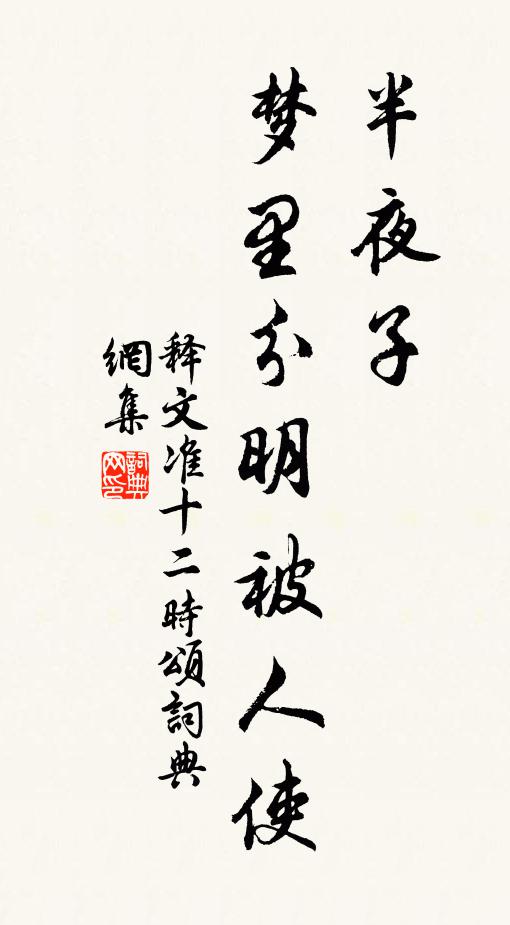 半夜子
梦里分明被人使
释文准十二時頌詞典
網集
詞典网印